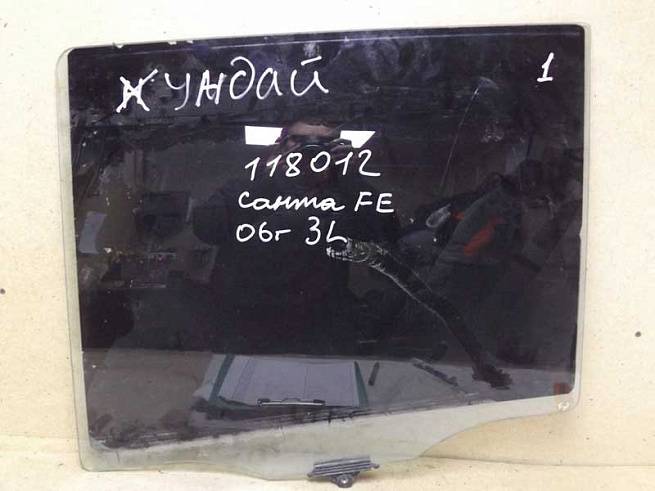 Хундай
1
118012
Санта FE
06г 3L